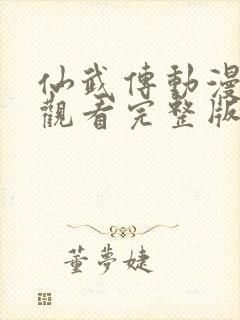 仙武傳動漫
觀看完整版
董夢婕